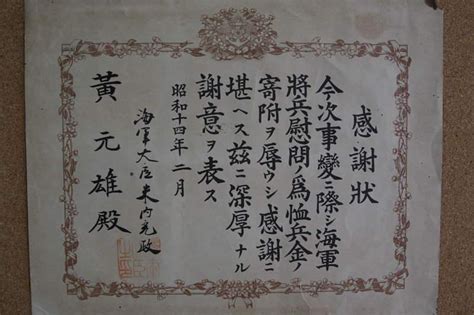 感謝狀
今次事變ニ際シ海軍
將兵慰問ノ爲恤兵金ノ
寄附ヲ辱ウシ感謝ニ
堪ヘス茲ニ深厚ナル
謝意ヲ表ス
昭和十四年二月
海軍大臣米內光政
黃元雄殿